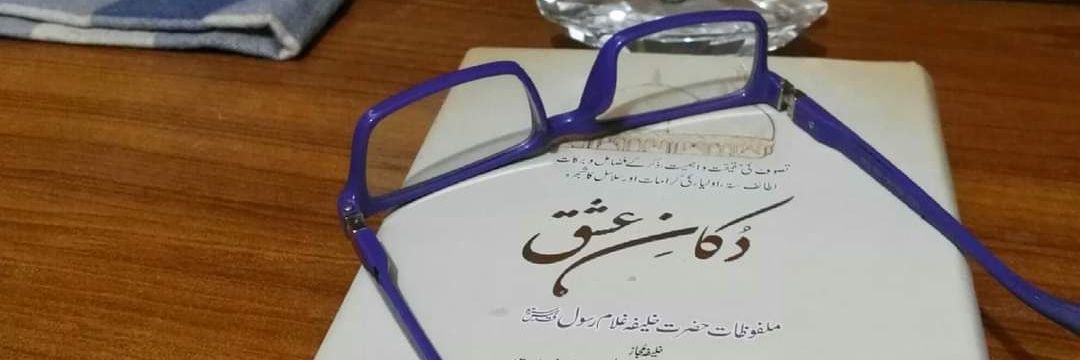 تصوف کی حقیقت و اہمیت، ذکر کے فضائل و برکات
لطائف ستہ، اولیاء کی کرامات اور سلاسل کا شجرہ
دُکانِ عشق
ملفوظات حضرت خلیفہ غلام رسول
خلیفہ مجاز